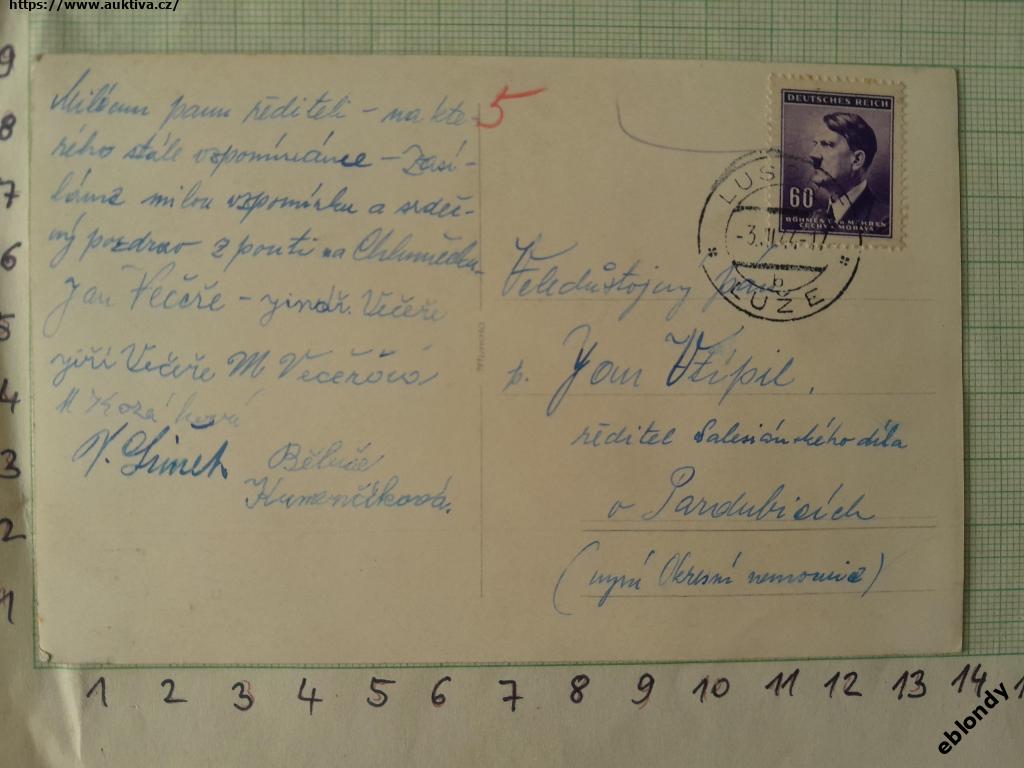 https://www.auktiva.cz/
Milému panu řediteli - na kte-
rého stále vzpomínáme - Zasí-
láme milou vzpomínku a srdeč-
ný pozdrav z pouti na Chlumečku
Jan Večeře - Jindř. Večeře
Jiří Večeře M Večeřová
M Kozáková
V. Šimek
Běluše
Kumenčíková.
5
DEUTSCHES REICH
60
BÖHMEN U. MÄHREN
ČECHY A MORAVA
-3.II.44-17
b
LUŽE
Veledůstojný pán
p. Jan Vtípil,
ředitel Salesiánského díla
v Pardubicích
(nyní Okresní nemocnice)
9
8
7
6
5
4
3
2
1
1 2 3 4 5 6 7 8 9 10 11 12 13 14
eblondy